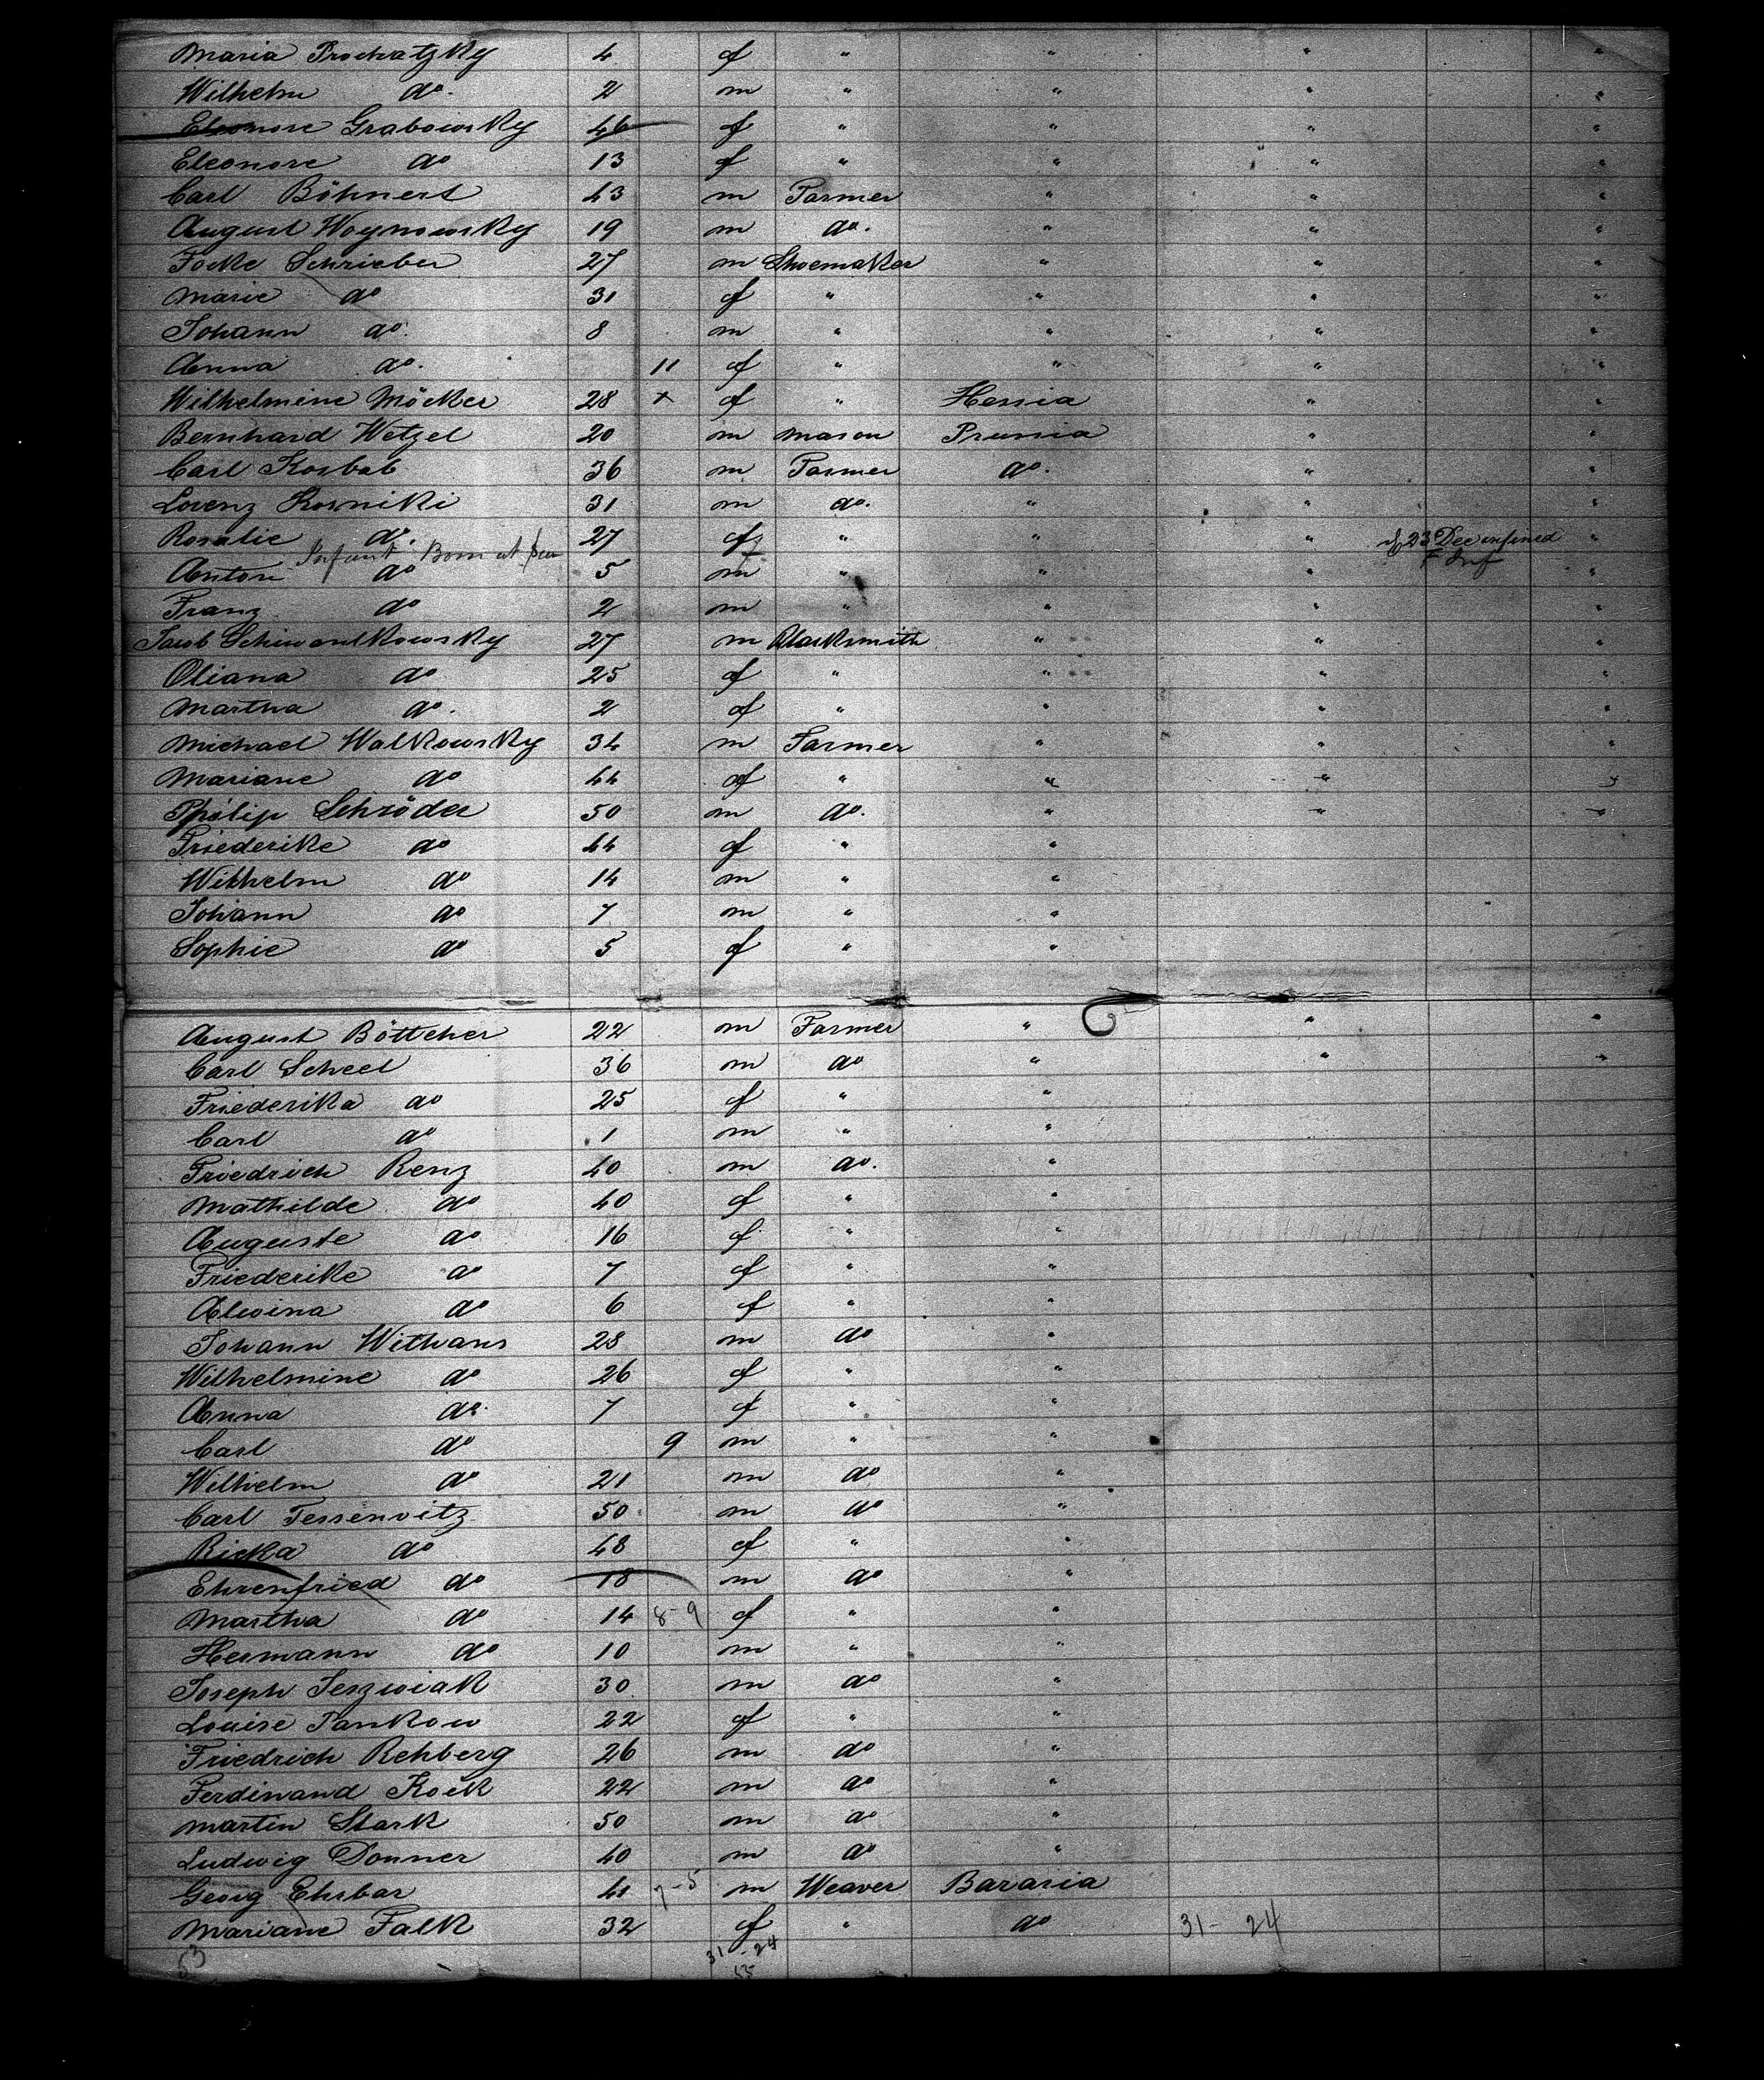 Maria Prochatzky 4 f " " " "
Wilhelm do. 2 m " " " "
Eleonore Grabowsky 46 f " " " "
Eleonore do 13 f " " " "
Carl Böhnert 43 m Farmer " " "
August Woynowsky 19 m do. " " "
Focke Schrieber 27 m Shoemaker " " "
Marie do 31 f " " " "
Johann do. 8 m " " " "
Anna do. 11 f " " " "
Wilhelmine Möcker 28 x f " Hessia " "
Bernhard Wetzel 20 m Mason Prussia " "
Carl Kosbab 36 m Farmer do. " "
Lorenz Kosniki 31 m do. " " "
Rosalie do. 27 f " " " 23 Dec confined "
Infant Born at Sea f Inf
Anton do 5 m " " " "
Franz do 2 m " " " "
Jacob Schwantkowsky 27 m Blacksmith " " "
Oliana do 25 f " " " "
Martha do. 2 f " " " "
Michael Walkowsky 34 m Farmer " " "
Mariane do 44 f " " " "
Philip Schröder 50 m do. " " "
Friederike do 44 f " "
Wilhelm do 14 m " "
Johann do 7 m " "
Sophie do 5 f " "
August Böttcher 22 m Farmer " " "
Carl Scheel 36 m do " " "
Friederika do 25 f " "
Carl do 1 m " "
Friedrich Renz 40 m do. "
Mathilde do 40 f " "
Auguste do 16 f " "
Friederike do 7 f " "
Alwina do 6 f " "
Johann Withans 28 m do "
Wilhelmine do 26 f " "
Anna do. 7 f " "
Carl do 9 m " "
Wilhelm do 21 m do "
Carl Tessenvitz 50 m do "
Ricka do 48 f " "
Ehrenfried do 18 m do "
Martha do 14 8-9 f " "
Hermann do 10 m " "
Joseph Jeszwiak 30 m do "
Louise Pankow 22 f " "
Friedrich Rehberg 26 m do "
Ferdinand Kock 22 m do "
Martin Stark 50 m do "
Ludwig Donner 40 m do "
Georg Ehrbar 41 7-5 m Weaver Bavaria
Mariane Falk 32 f " do 31-24
53 31-24
55